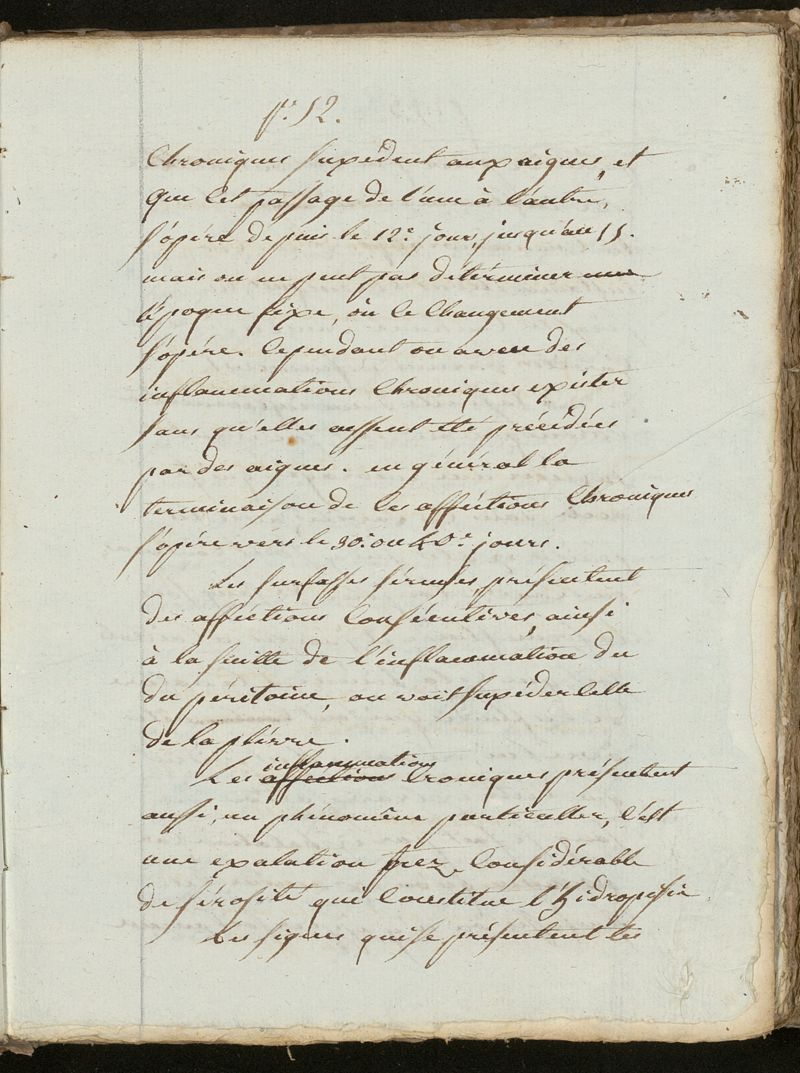 p.r 52.
Chroniques supèdent aux aigues, et
que cet passage de l'une à l'autre,
s'opère depuis le 12.e jour, jusqu'au 15.
mais on ne peut pas détérminer une
époque fixe, où le Changement
s'opére. Cependant on a vu des
inflammations Chroniques exister
sans qu'elles ussent été précédées
par des aigues. en général la
terminaison de ces afféctions Chroniques
s'opère vers le 30.e ou 40.e jours.
Les surfasses séreuses, présentent
des afféctions Conséentives, ainsi
à la suitte de l'inflammation du
du péritoine, on voit supéder celle
de la plévre.
Les inflammations affections croniques présentent
aussi, un phénomène particulier, c'est
une exalation trez Considérable
de sérosité qui Constitue l'hidropisie
Les signes qui se présentent tes